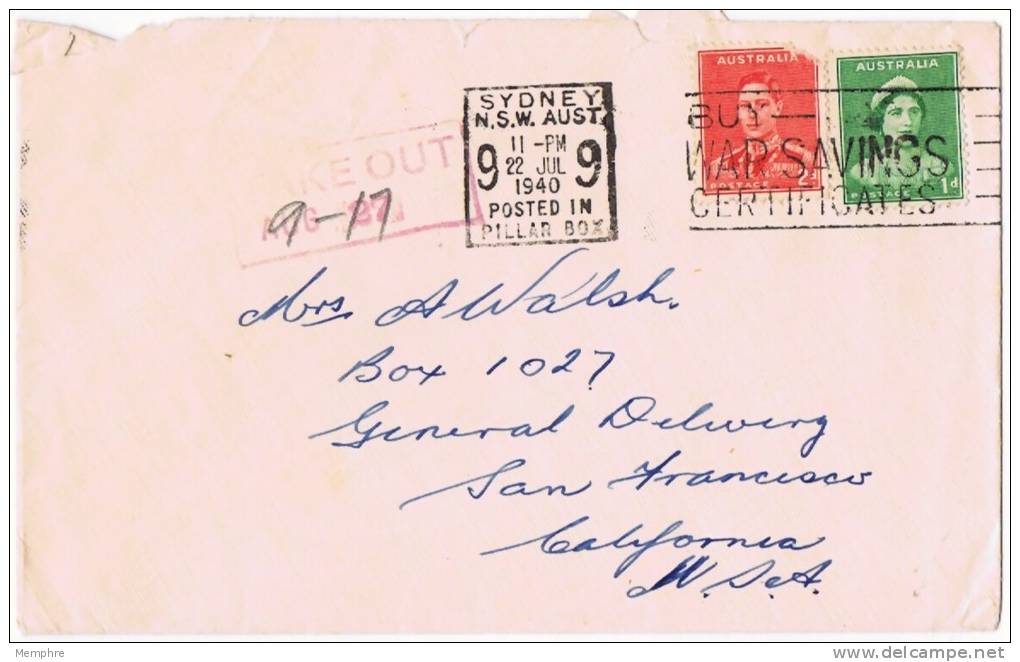 AUSTRALIA
2d
POSTAGE
AUSTRALIA
POSTAGE 1d
SYDNEY
N.S.W. AUST.
11 -PM
9 22 JUL 9
1940
POSTED IN
PILLAR BOX
BUY
WAR SAVINGS
CERTIFICATES
OUT
AUG
9-17
Mrs. A Walsh.
Box 1027
General Delivery
San Francisco
California
U.S.A.
Memphre
www.delcampe.net